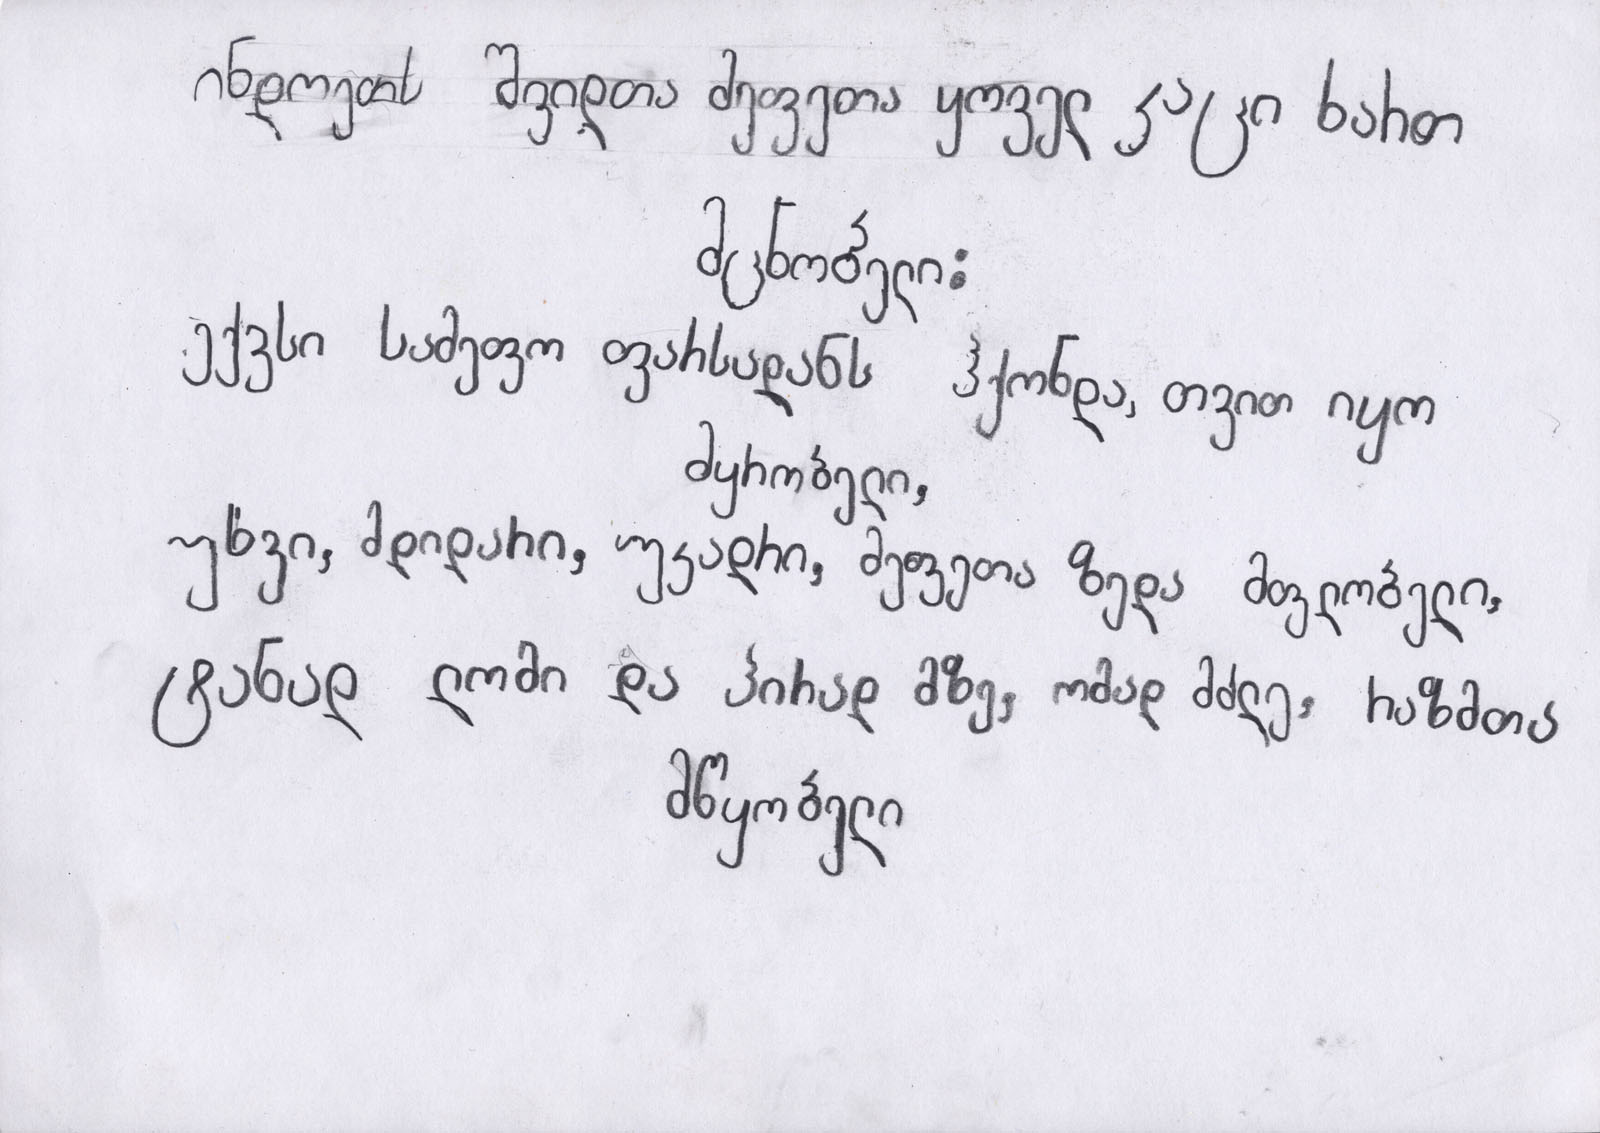 ინდოეთს შვიდთა მეფეთა ყოველ კაცი ხართ
მცნობელი:
ექვსი სამეფო ფარსადანს ჰქონდა, თვით იყო
მყრობელი,
უხვი, მდიდარი, უკადრი, მეფეთა ზედა მფლობელი,
ტანად ლომი და პირად მზე, ომად მძლე, რაზმთა
მწყობელი